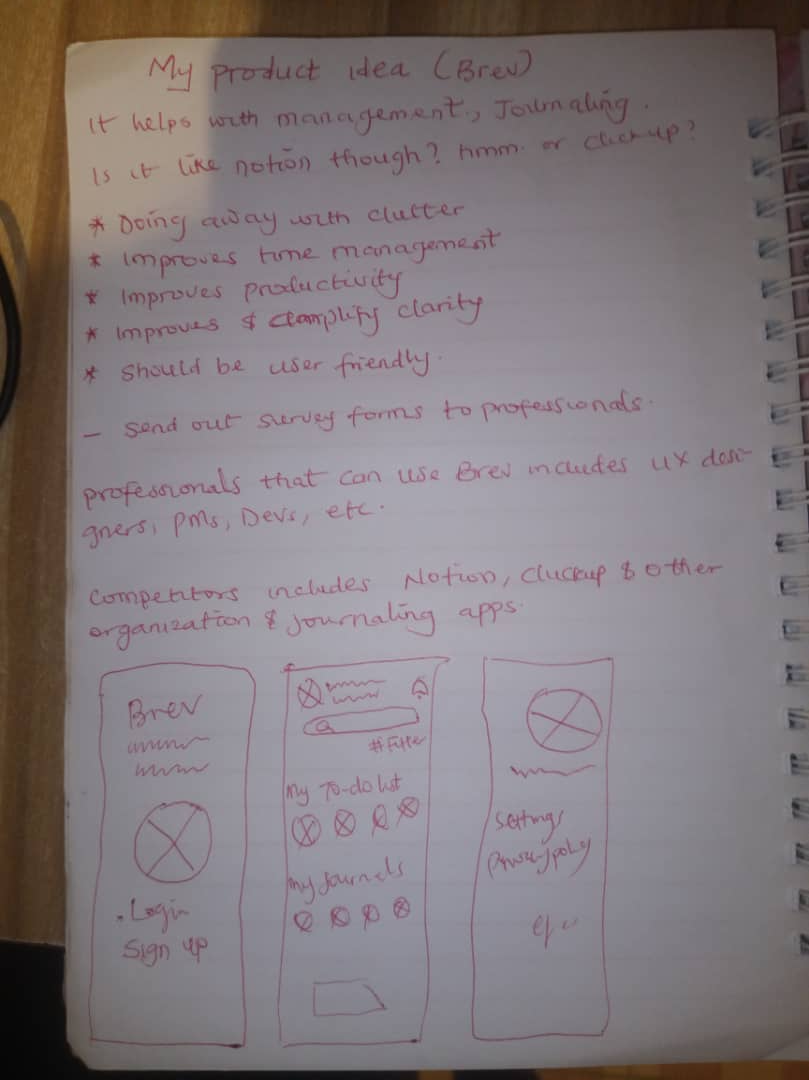 My product idea (Brev)
It helps with management, Journaling.
Is it like notion though? hmm. or clickup?
* Doing away with clutter
* improves time management
* improves productivity
* improves & clamplify clarity
* should be user friendly.
- send out survey forms to professionals.
professionals that can use Brev includes UX desi-
gners, PMs, Devs, etc.
competitors includes Notion, clickup & other
organization & journaling apps.
Brev
Login
Sign up
Filter
My To-do list
My Journals
Settings
Privacy policy